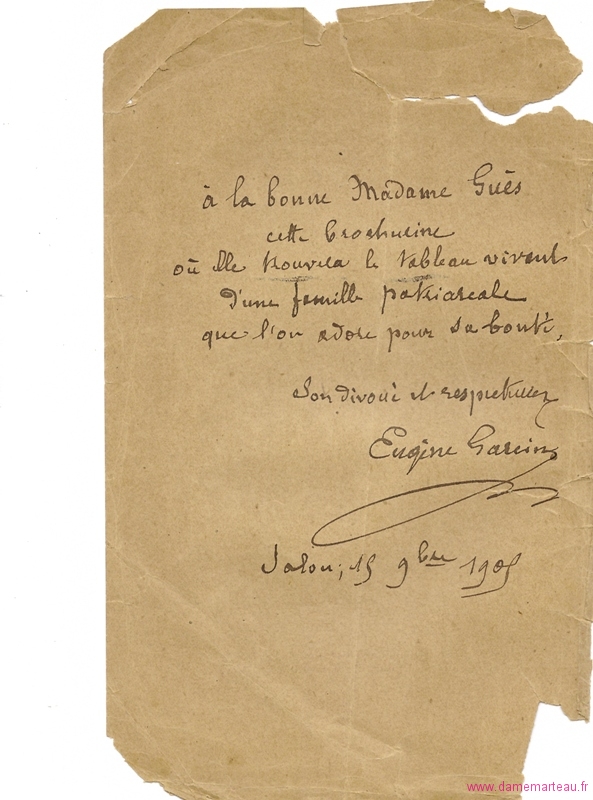 à la bonne Madame Guès
cette brochurine
où elle trouvera le tableau vivant
d'une famille patriarcale
que l'on adore pour sa bonté.
Son dévoué et respectueux
Eugène Garcin
Salon, 15 9bre 1905
www.damemarteau.fr